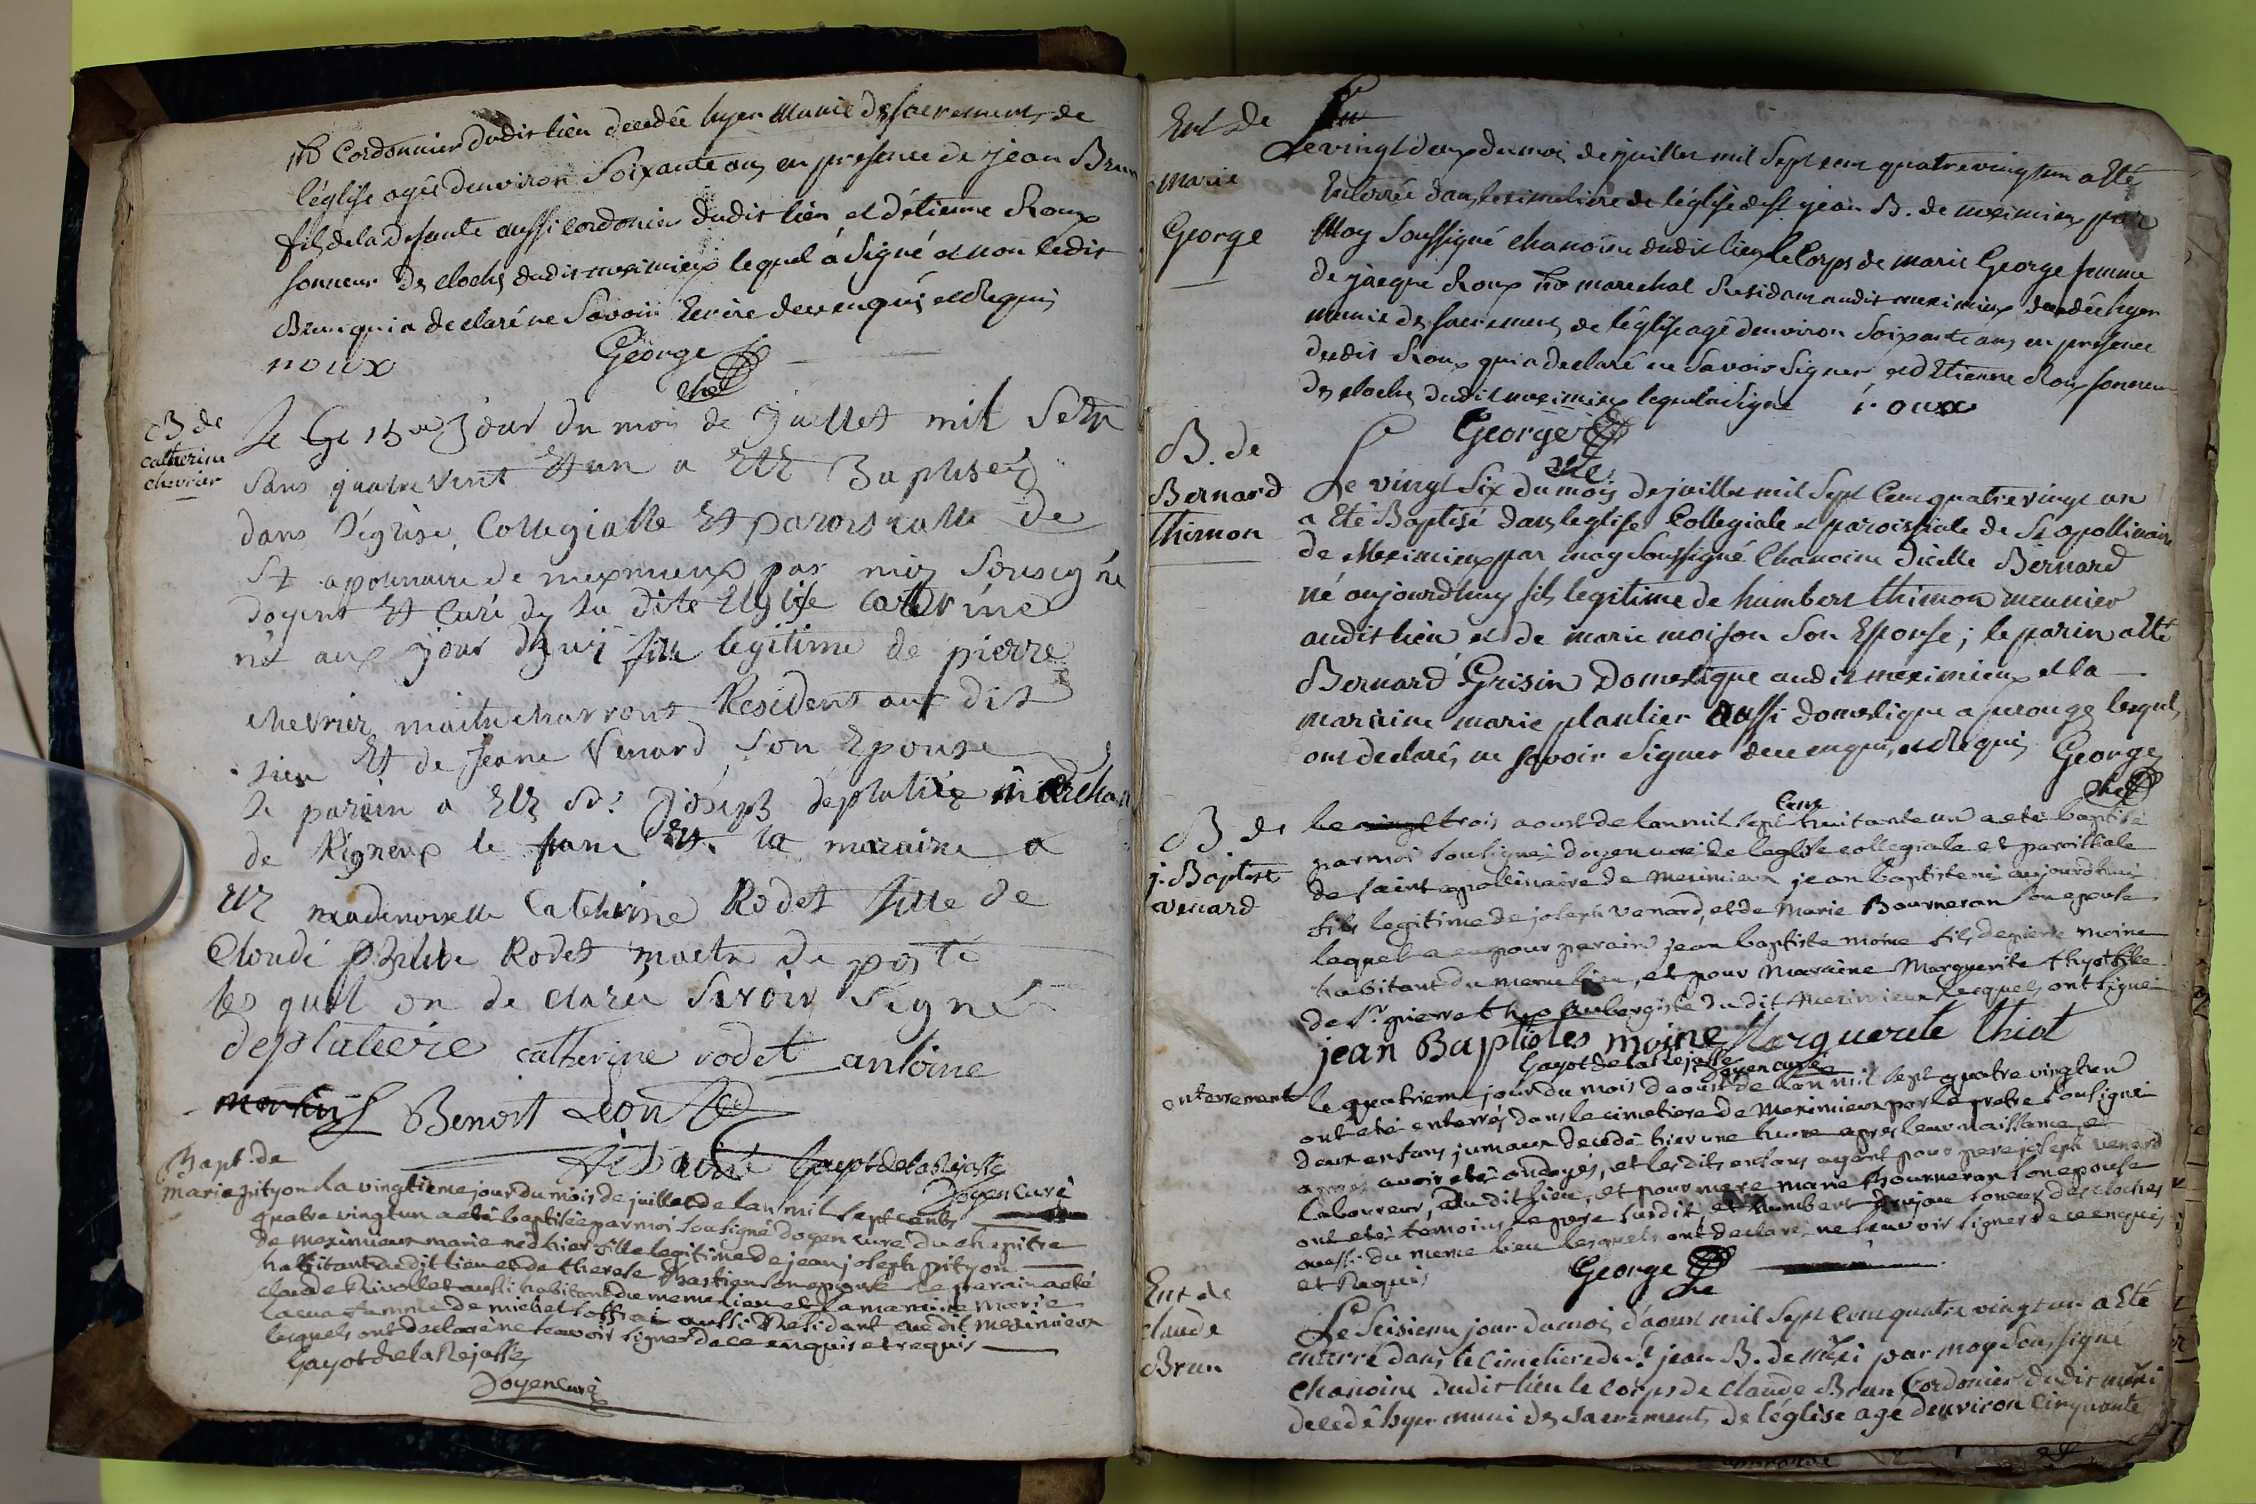 mᵈ Cordonnier dudit lieu decedée hyer Munie des sacrements de
l'église agée denviron Soixante ans en présence de jean Brun
fils de la defunte aussi cordonier dudit lieu et d'étienne Roux
sonneur des cloches dudit meximieux lequel a Signé et non ledit
Brun qui a declaré ne Savoir Ecrire de ce enquis et Requis
roux George
che
B de
catherine
chevrier
Le 15me Jour du mois de Juellet mil Sept
Sans quatre vint Et un a Eté Baptisez
dans l'église Collegialle Et paroissialle de
St apolinaire de meximieux par moi Sousigné
doyent Et Curé de la dite Eglise Caterine
né aux jour dhui fille legitime de pierre
chevrier maitre charront Resident aux dit
lieu Et de Jeane Venard Son Epouse
Le parain a Eté Sr. Joseph deplatiere
de Rigneux le franc Et la maraine a
Eté mademoiselle Catherine Rodet fille de
Cloude Rodet maitre de poste
les quel on de claréz Savoir Signé
deplatière catherine rodet antoine
Benoit Leon
Gayot de la Rejasse
Doyen Curé
Bapt. de
marie pityon La vingtieme jour du mois de juillet de lan mil sept cents
quatre vingt un a eté baptisée par moi sousigné doyen curé du chapitre
de meximieux marie neé hier fille legitime de jean joseph pityon
habitant dudit lieu et de therese Bastien son epouse le parain a eté
claude Rivollet aussi habitant du meme lieu et la maraine marie
femme de michel aussi Resident audit meximieux
lesquels ont declaré ne scavoir signer de ce enquis et requis
Gayot de la Rejasse
Doyen Curé
Ent de
Marie
George
Le vingt deux du mois de juillet mil Sept cent quatrevingt un a Eté
Enterrée dans le cimetiere de l'église de St jean B. de meximieux par
Moy Soussigné chanoine dudit lieu le Corps de marie George femme
de jacque Roux mᵈ marechal Residant audit meximieux decedée hyer
munie des sacrements de l'église agé denviron soixante ans en présence
dudit Roux qui a declaré ne savoir signer et d'Etienne Roux sonneur
des cloches dudit meximieux lequel a signé roux
George
che
B. de
Bernard
thimon
Le vingt Six du mois de juillet mil Sept Cent quatre vingt un
a Eté Baptisé dans leglise Collegiale et paroissiale de St apollinaire
de Meximieux par moy Soussigné Chanoine dicelle Bernard
né aujourd'huy fils legitime de humbert thimon meunier
audit lieu et de marie moison Son Epouse ; le parin a Eté
Bernard Grisin Domestique audit meximieux et la
maraine marie plantier aussi domestique a perouge lesquels
ont declarés ne savoir signer de ce enquis et Requis George
che
B de
j. Baptiste
venard
le trois aoust de lan mil sept Cent huitante un a eté baptisé
par moi sousigné doyen curé de leglise collegiale et paroissiale
de saint apollinaire de meximieux jean baptiste né aujourdhui
fils legitime de joseph venard, et de marie Bourneran son epouse
lequel a eu pour parain jean baptiste moine fils de pierre moine
habitant du meme lieu, et pour Maraine Marguerite thyot fille
de Sr. pierre thyo aubergiste dudit Meximieux lesquels ont signé
jean Baptistes moine Marguerite thiot
Gayot de la Rejasse
Doyen curé
enterrement
le quatrieme jour du mois daoust de lan mil sept quatre vingt un
ont eté enterrés dans le cimetiere de Meximieux par le pretre sousigné
deux enfans jumaux decedé hier une heure apres leur naissance, et
apres avoir eté ondoyés, et lesdits enfans ayant pour pere joseph venard
laboureur, dudit lieu, et pour mere marie Bourneran son epouse
ont eté temoins le pere susdit et humbert soneur des cloches
aussi du meme lieu lesquels ont declaré ne scavoir signer de ce enquis
et Requis
George
che
Ent de
claude
Brun
Le Seisieme jour du mois d'aoust mil Sept Cent quatre vingt un a Eté
enterré dans le cimetiere de St jean B. de mexi par moy Soussigné
chanoine dudit lieu le corps de claude Brun Cordonier dudit mexi
decedé hyer muni des sacrements de l'église agé denviron Cinquante